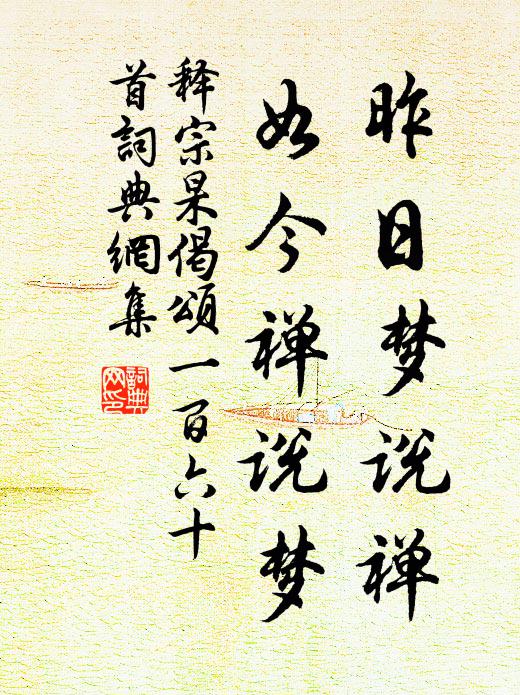 昨日梦说禅
如今禅说梦
释宗杲偈颂一百六十
首詞典網集
詞典网印